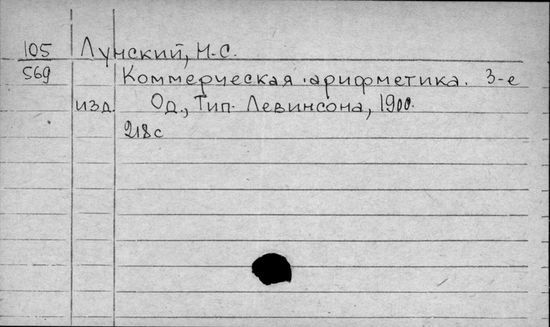 105 Лунский, Н.С.
569 Коммерческая арифметика. 3-е
изд. Од., Тип. Левинсона, 1900.
218с